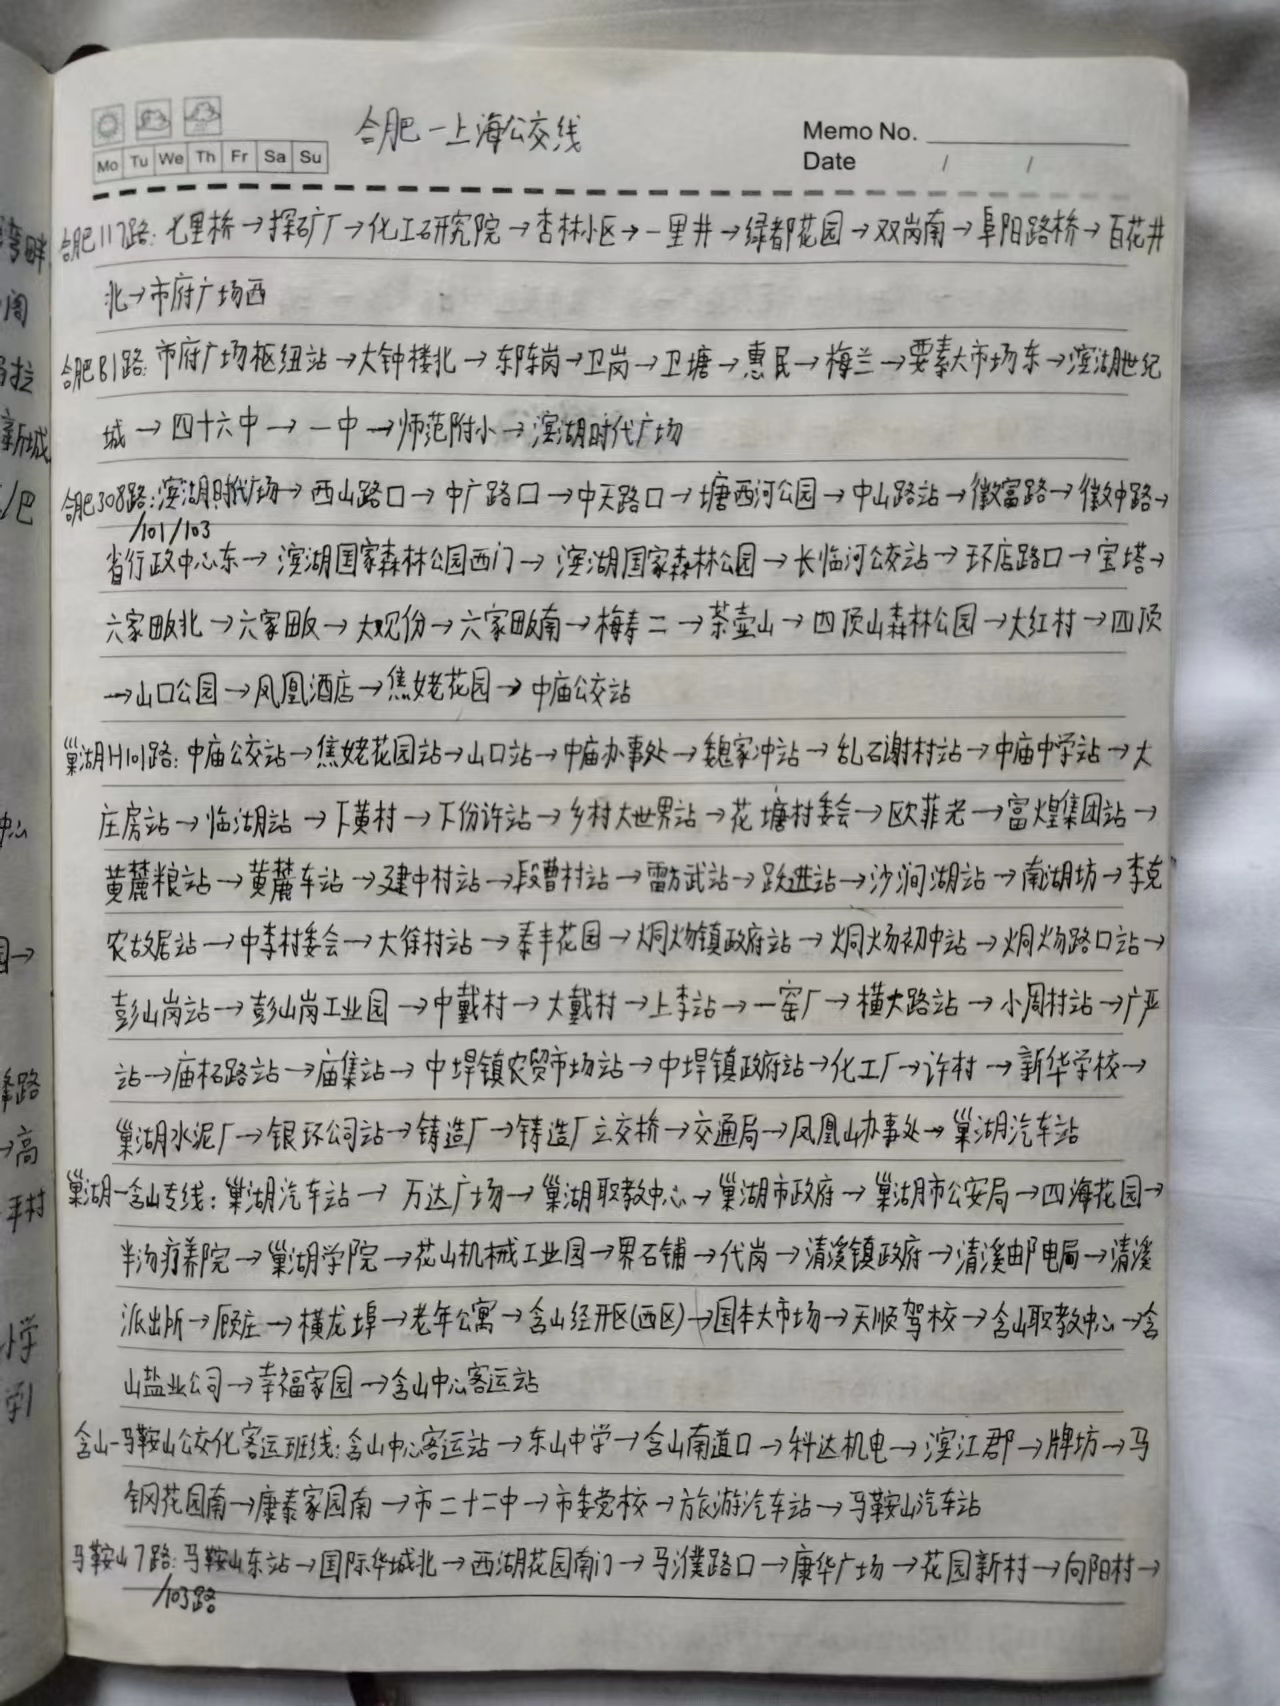 合肥一上海公交线
Memo No.
Date / /
Mo Tu We Th Fr Sa Su
合肥117路:七里桥→探矿厂→化工研究院→杏林小区→一里井→绿都花园→双岗南→阜阳路桥→百花井
北→市府广场西
合肥B1路:市府广场枢纽站→大钟楼北→东陈岗→卫岗→卫塘→惠民→梅兰→要素大市场东→滨湖世纪
城→四十六中→一中→师范附小→滨湖时代广场
合肥308路:滨湖时代广场→西山路口→中广路口→中天路口→塘西河公园→中山路站→徽富路→徽中路→
/101/103
省行政中心东→滨湖国家森林公园西门→滨湖国家森林公园→长临河公交站→环店路口→宝塔→
六家畈北→六家畈→大观份→六家畈南→梅寿二→茶壶山→四顶山森林公园→大红村→四顶
→山口公园→凤凰酒店→焦姥花园→中庙公交站
巢湖H101路:中庙公交站→焦姥花园站→山口站→中庙办事处→魏家冲站→乱石谢村站→中庙中学站→大
庄房站→临湖站→下黄村→下份许站→乡村大世界站→花塘村委会→欧菲老→富煌集团站→
黄麓粮站→黄麓车站→建中村站→段曹村站→雷方武站→跃进站→沙涧湖站→南湖坊→李克
农故居站→中李村委会→大徐村站→泰丰花园→烔炀镇政府站→烔炀初中站→烔炀路口站→
彭山岗站→彭山岗工业园→中戴村→大戴村→上李站→一窑厂→横大路站→小周村站→广严
站→庙柘路站→庙集站→中垾镇农贸市场站→中垾镇政府站→化工厂→许村→新华学校→
巢湖水泥厂→银环公司站→铸造厂→铸造厂立交桥→交通局→凤凰山办事处→巢湖汽车站
巢湖一含山专线:巢湖汽车站→万达广场→巢湖职教中心→巢湖市政府→巢湖市公安局→四海花园→
半汤疗养院→巢湖学院→花山机械工业园→界石铺→代岗→清溪镇政府→清溪邮电局→清溪
派出所→顾庄→横龙埠→老年公寓→含山经开区(西区)→国丰大市场→天顺驾校→含山职教中心→含
山盐业公司→幸福家园→含山中心客运站
含山-马鞍山公交化客运班线:含山中心客运站→东山中学→含山南道口→科达机电→滨江郡→牌坊→马
钢花园南→康泰家园南→市二十二中→市委党校→旅游汽车站→马鞍山汽车站
马鞍山7路:马鞍山东站→国际华城北→西湖花园南门→马濮路口→康华广场→花园新村→向阳村→
/103路